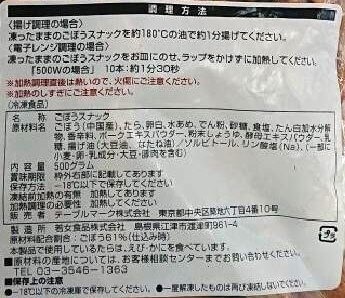 調理方法
〈揚げ調理の場合〉
凍ったままのごぼうスナックを約180℃の油で約1分揚げてください。
〈電子レンジ調理の場合〉
凍ったままのごぼうスナックをお皿にのせ、ラップをかけずに加熱して下さい。
「500Wの場合」 10本:約1分30秒
※加熱調理直後は熱いので、火傷にご注意ください。
※加熱のしすぎにご注意ください。
(冷凍食品)
名称 ごぼうスナック
原材料名 ごぼう(中国産)、たら、卵白、水あめ、でん粉、砂糖、食塩、たん白加水分解
物、香辛料、ポークエキスパウダー、粉末しょうゆ、酵母エキスパウダー、乳
糖、揚げ油(大豆油、なたね油)/ソルビトール、リン酸塩(Na)、(一部に
小麦・卵・乳成分・大豆・豚肉を含む)
内容量 500グラム
賞味期限 枠外右部に記載してあります
保存方法 −18℃以下で保存してください
凍結前加熱の有無 加熱してあります
加熱調理の必要性 加熱してください
販売者 テーブルマーク株式会社 東京都中央区築地六丁目4番10号
製造所 株式会社 島根県江津市渡津町961-4
原材料配合割合:ごぼう61%(仕込み時)
本製品で使用しているたらは、えび、かにを食べています。
■原材料の産地については、お客様相談センターまでお問い合わせください。
TEL 03-3546-1363
■保存上の注意
●−18℃以下の冷凍庫で保存してください。 ●一度解凍したものは再び凍結しないでください。